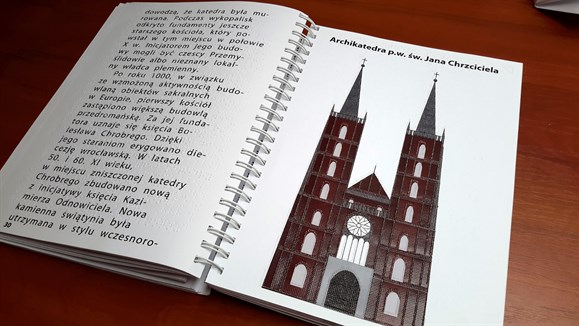 dowodzą, że katedra była mu-
rowana. Podczas wykopalisk
odkryto fundamenty jeszcze
starszego kościoła, który po-
wstał w tym miejscu w połowie
X w. Inicjatorem jego budo-
wy mogli być czescy Przemy-
ślidowie albo nieznany lokal-
ny władca plemienny.
Po roku 1000, w związku
ze wzmożoną aktywnością budo-
wlaną obiektów sakralnych
w Europie, pierwszy kościół
zastąpiono większą budowlą
przedromańską. Za jej funda-
tora uznaje się księcia Bo-
lesława Chrobrego. Dzięki
jego staraniom erygowano die-
cezję wrocławską. W latach
50. i 60. XI wieku,
w miejscu zniszczonej katedry
Chrobrego zbudowano nową
z inicjatywy księcia Kazi-
mierza Odnowiciela. Nowa
kamienna świątynia była
utrzymana w stylu wczesnoro-
30
Archikatedra p.w. św. Jana Chrzciciela